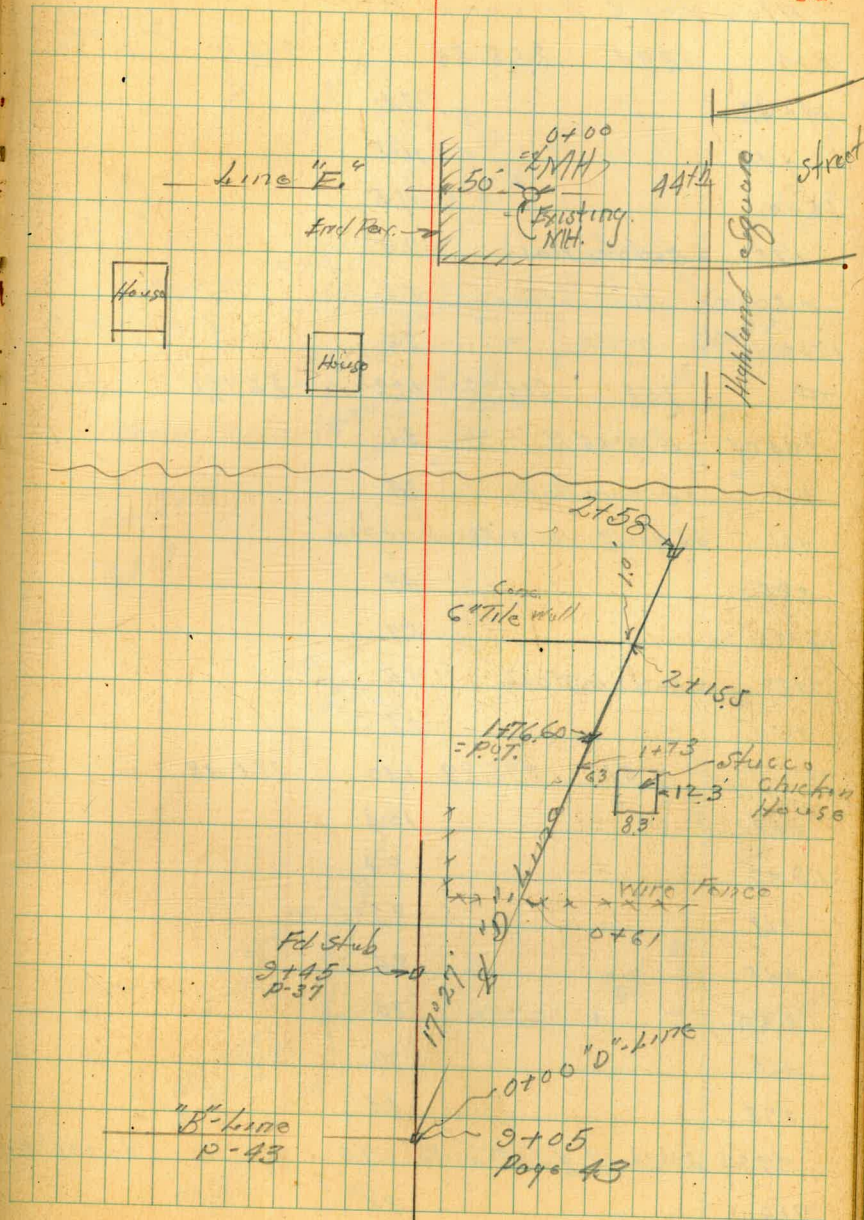 0+00
"E" MH
Line "E."
50'
44th
Street
Existing
MH.
End Pav.
Highland Square
House
House
2+58
1.0'
Conc.
6" Tile Wall
2+15.5
1+76.60
= P.O.T.
1+73
6.3
Stucco
Chicken
House
12.3
8.3
Wire Fence
"D" Line
0+61
Fd Stub
9+45
P-37
17°27'
0+00 "D"-Line
"B"-Line
P-43
9+05
Page 43